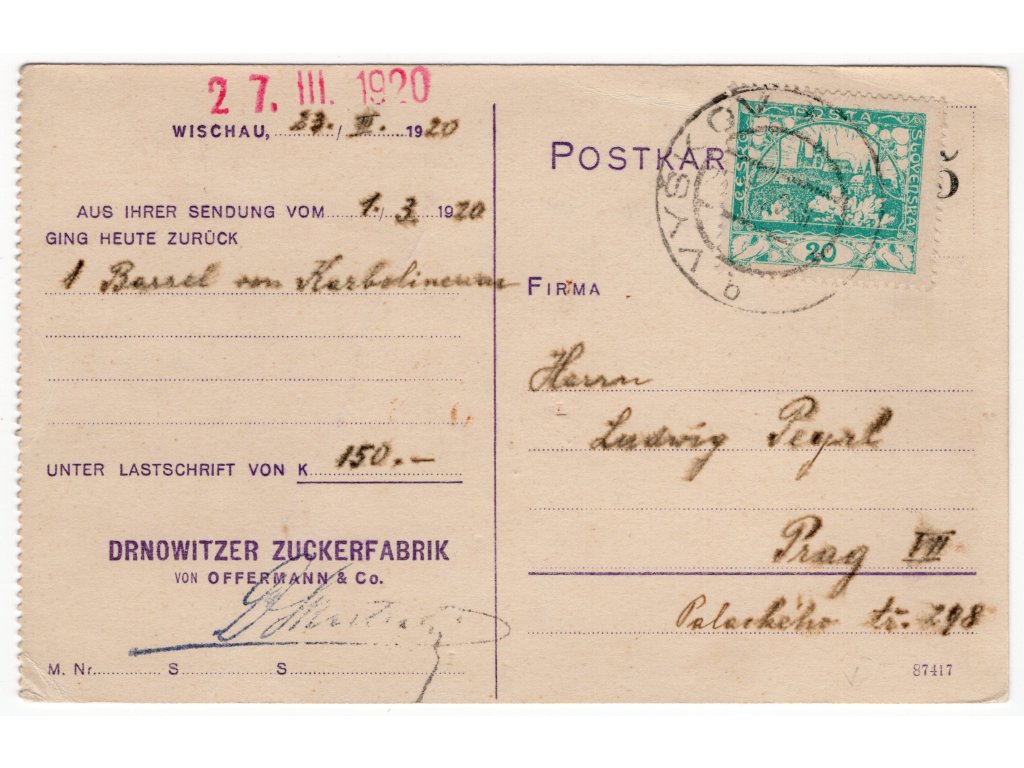 27. III. 1920
WISCHAU, 23. / III. 1920
AUS IHRER SENDUNG VOM 1. / 3. 1920
GING HEUTE ZURÜCK
1 Barrel von Karbolineum
UNTER LASTSCHRIFT VON K 150.–
DRNOWITZER ZUCKERFABRIK
VON OFFERMANN & Co.
M. Nr. S S
POSTKAR
VYŠKOV
POŠTA
ČESKO
SLOVENSKÁ
20
FIRMA
Herrn
Ludwig Peyrl
Prag III
Palackého tř. 298
87417